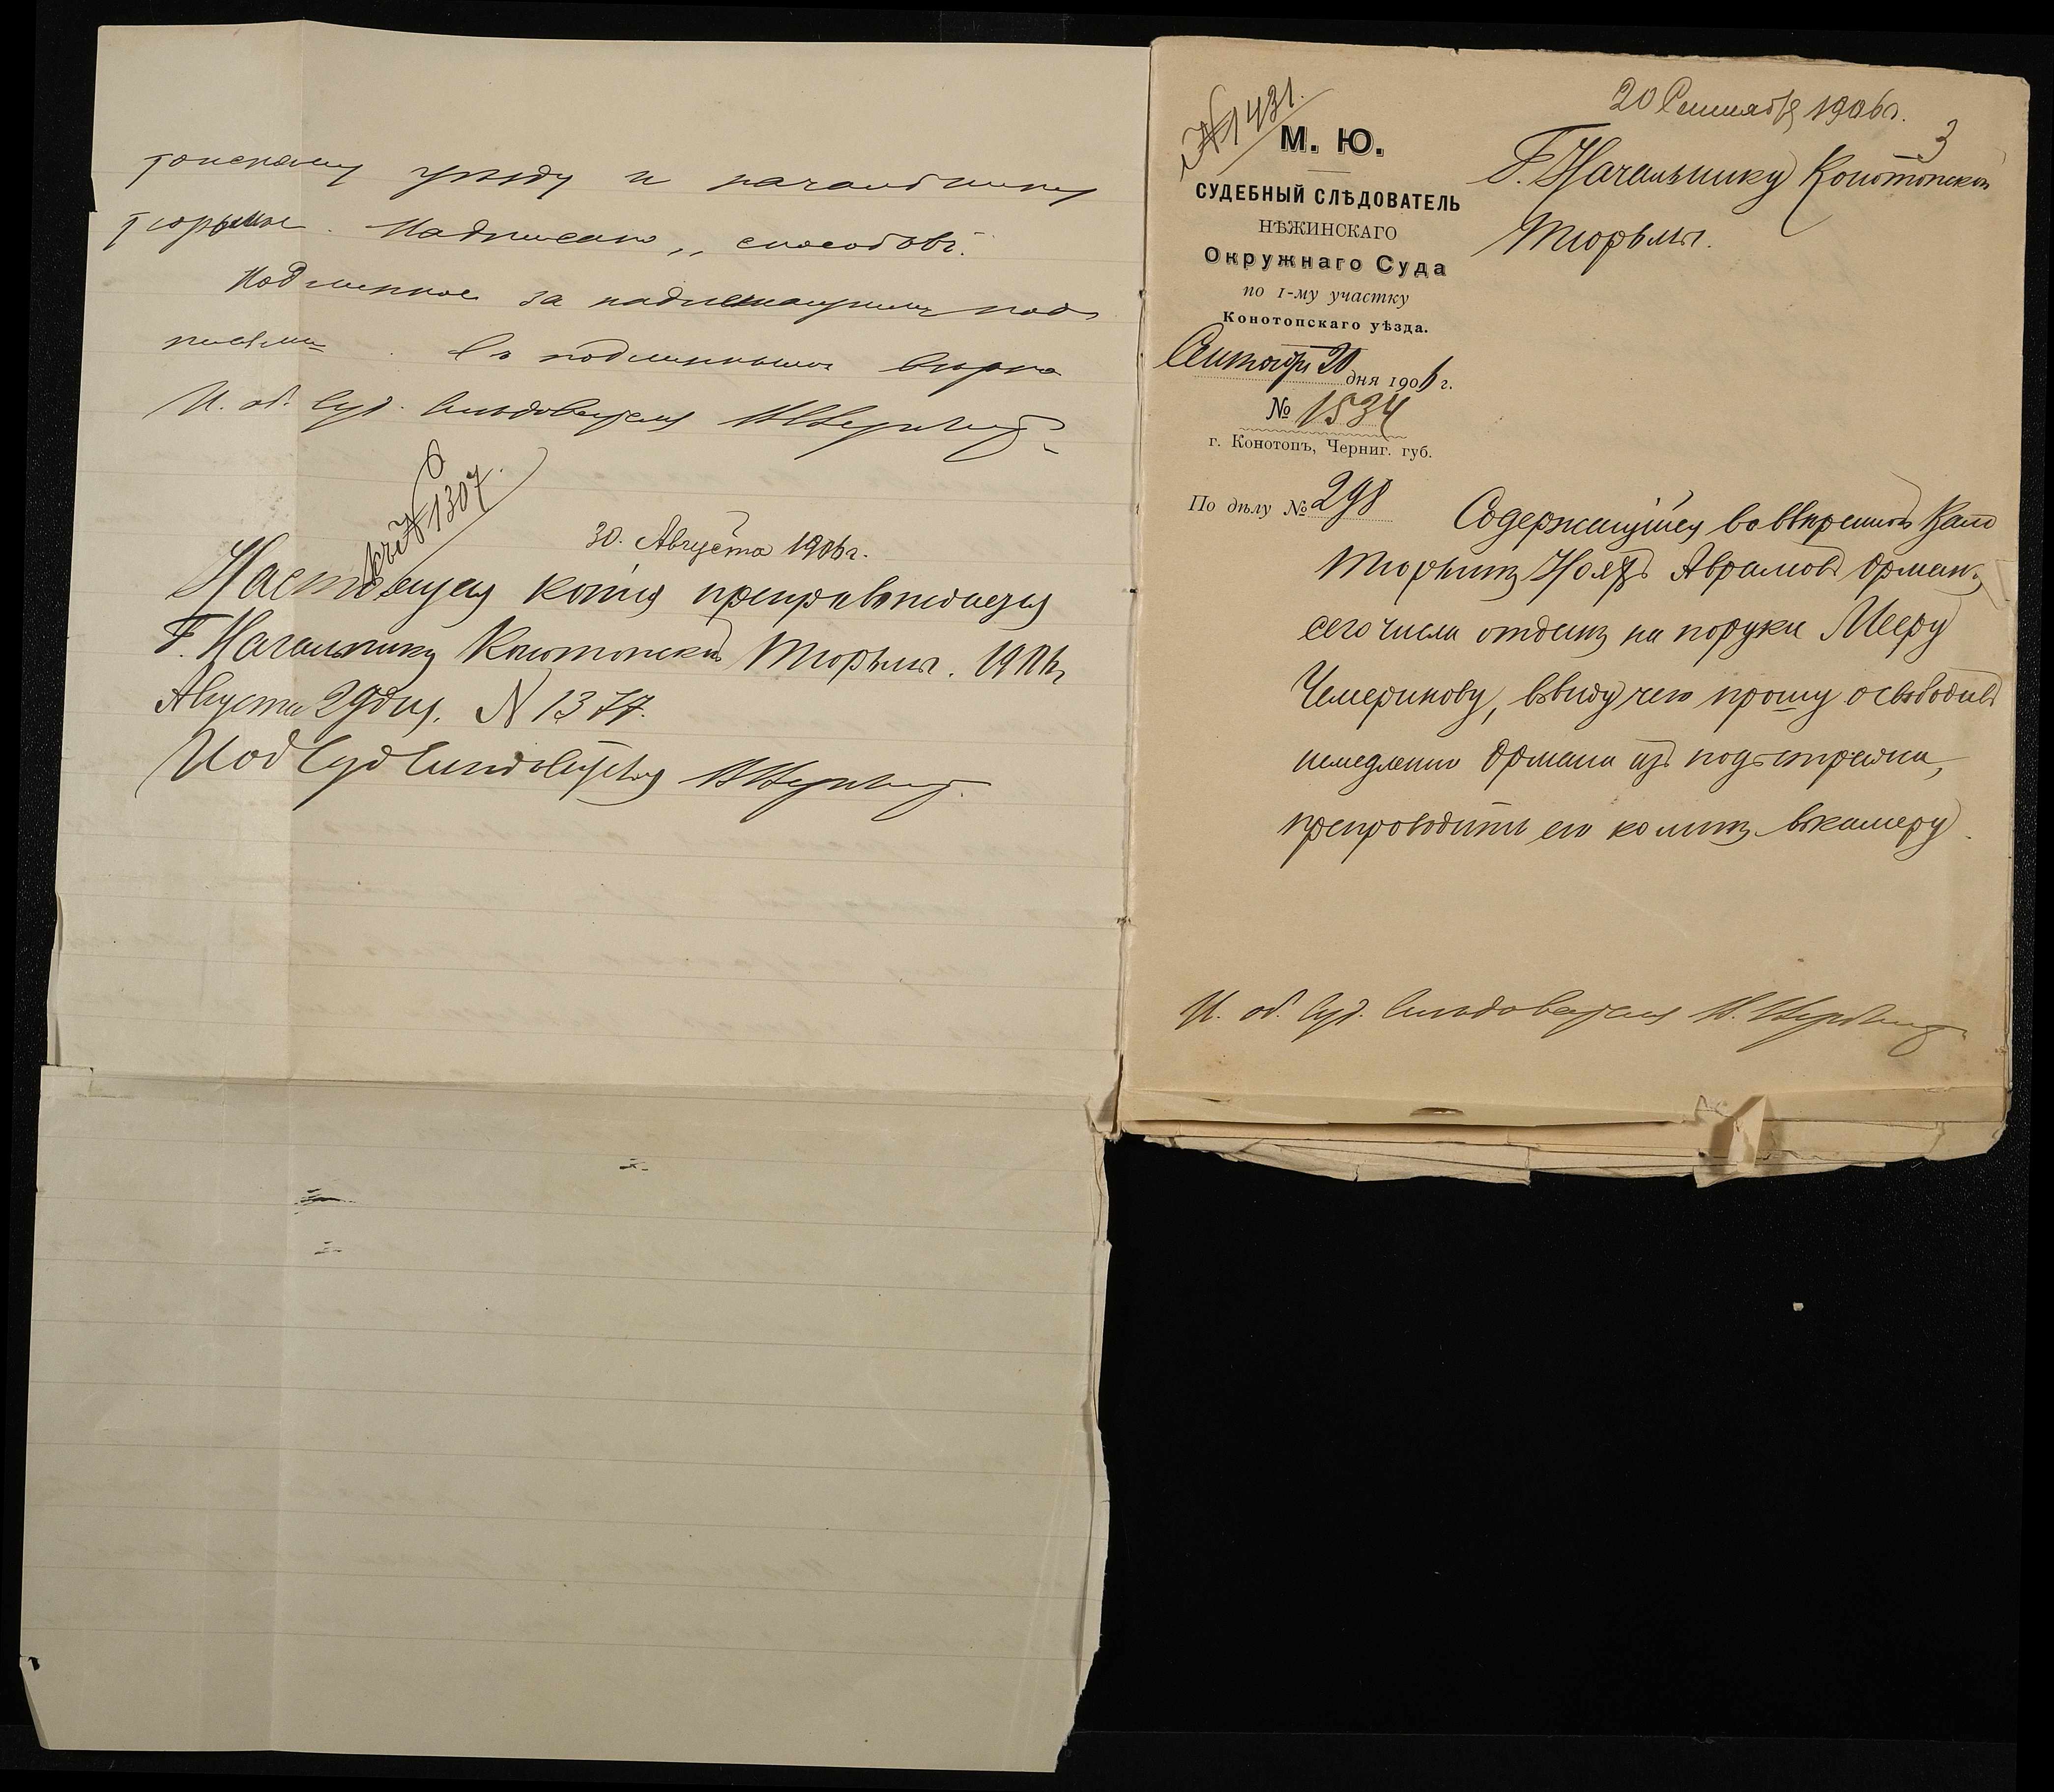 топскому уѣзду и начальнику
тюрьмы. Надписано „способовъ".
Подлинное за надлежащими под
писями. Съ подлиннымъ вѣрно
И. об. Суд. Слѣдователя
къ № 1307.
30. Августа 1906 г.
Настоящая копія препровождается
Г. Начальнику Конотопской Тюрьмы. 1906 г.
Августа 29 дня. N 1377.
И об Суд Слѣдователя
№ 1431.
20 Сентября 1906 г.
3
М. Ю.
СУДЕБНЫЙ СЛѢДОВАТЕЛЬ
НѢЖИНСКАГО
Окружнаго Суда
по 1-му участку
Конотопскаго уѣзда.
Сентября 20 дня 1906 г.
№ 1534
г. Конотопъ, Черниг. губ.
По дѣлу № 298
Г. Начальнику Конотопской
Тюрьмы.
Содержащійся во ввѣренной Вамъ
Тюрьмѣ Авраамовъ Орманъ
сего числа отданъ на поруки Мееру
Чемерикову, ввиду чего прошу освободивъ
немедленно Ормана изъ подъ стражи,
препроводить его ко мнѣ въ камеру.
И. об. Суд. Слѣдователя